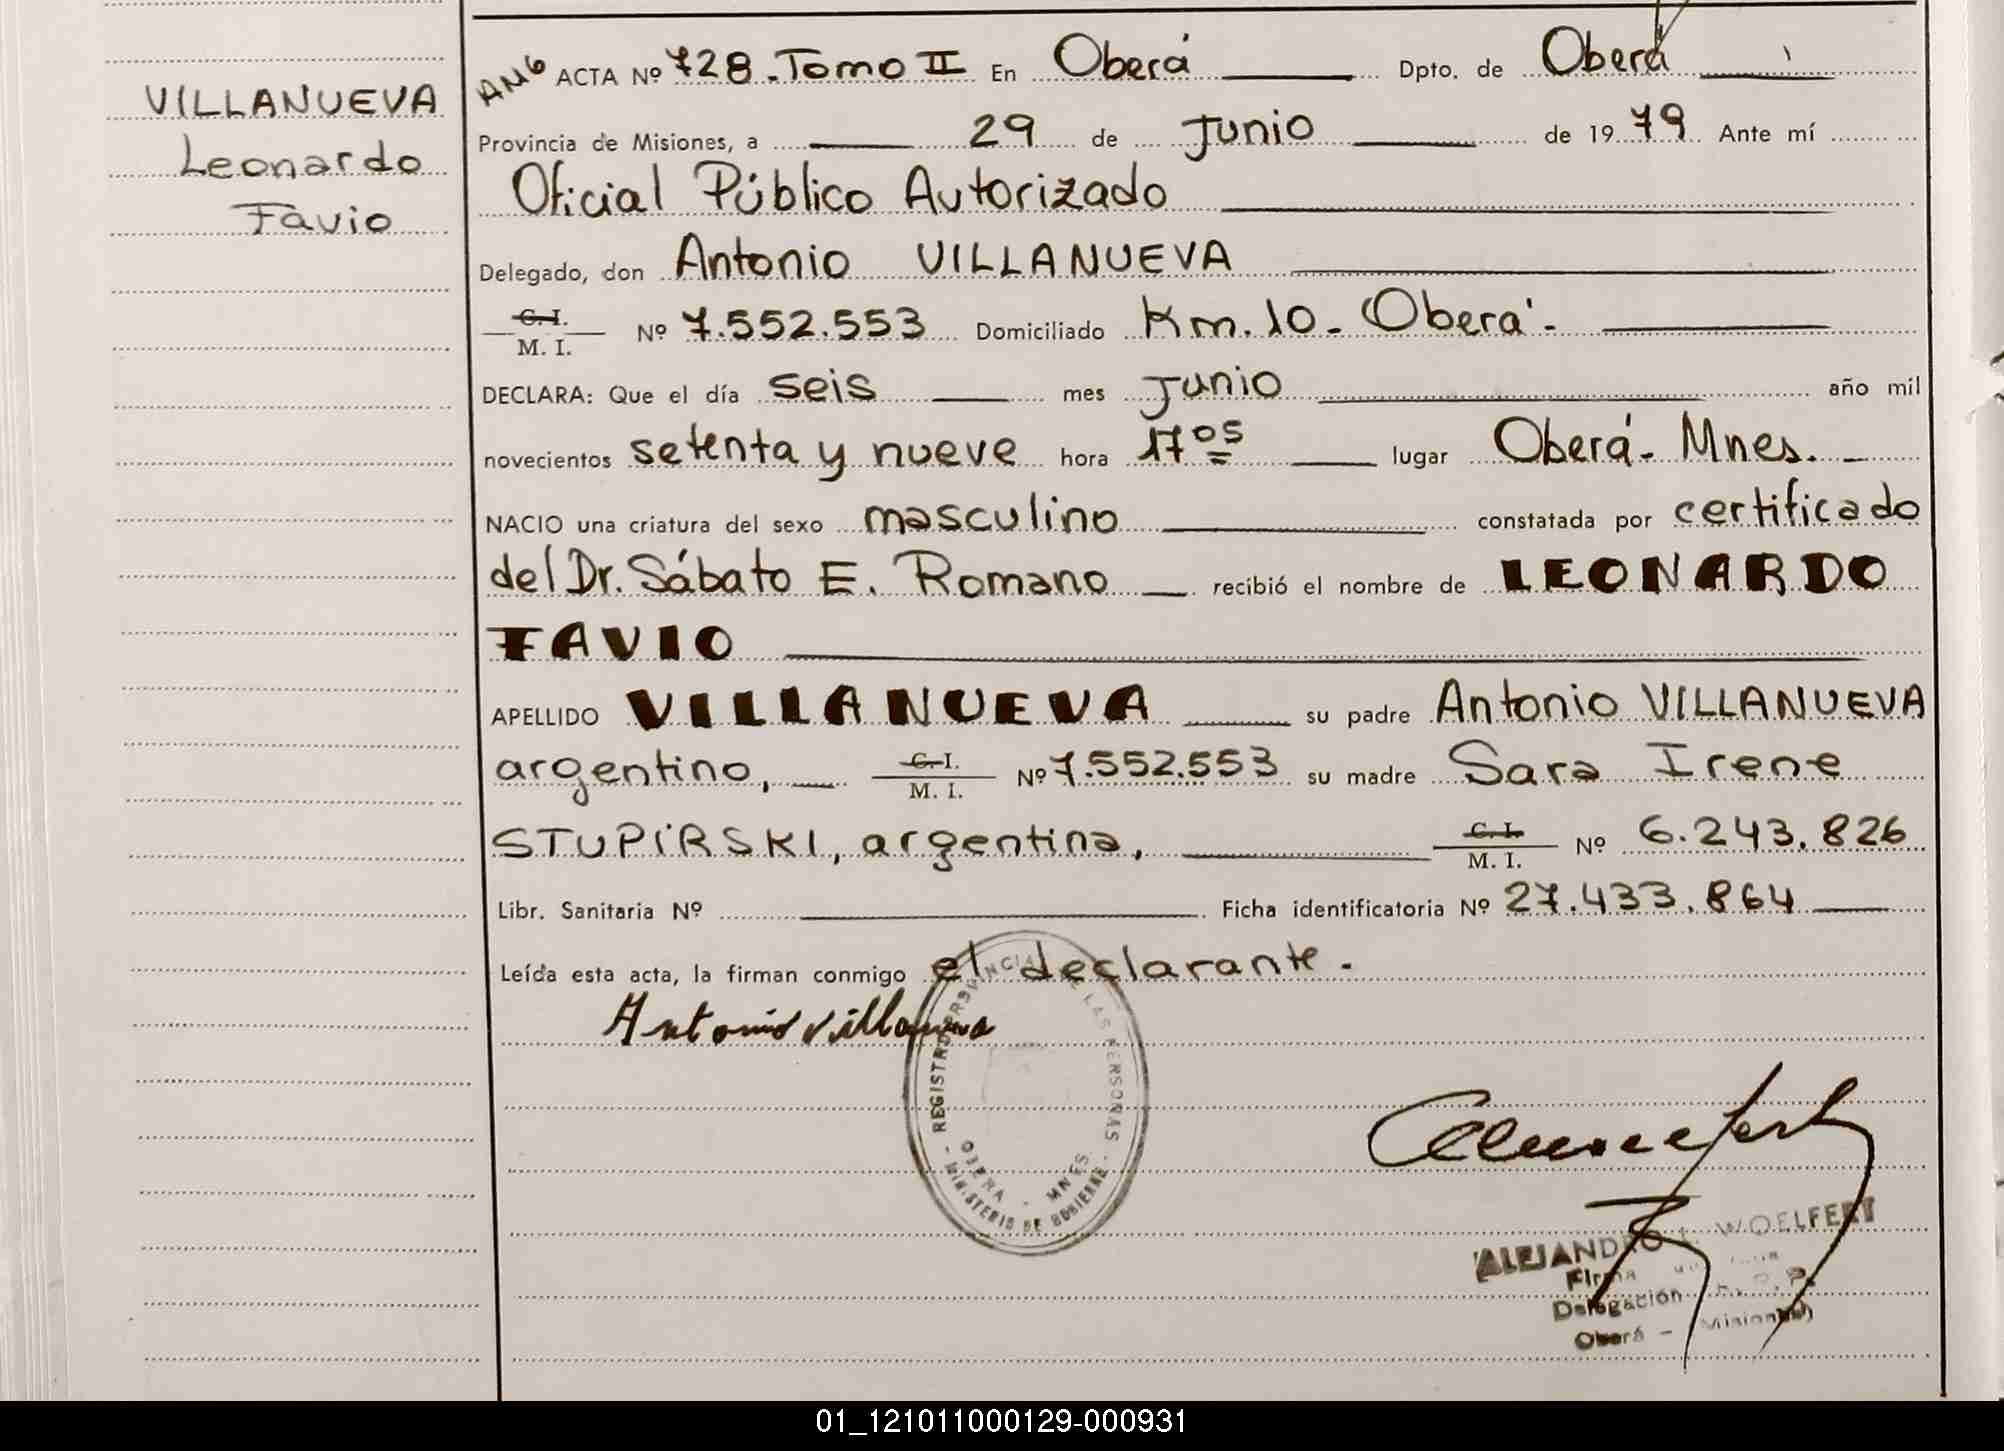 VILLANUEVA
Leonardo
Favio
ACTA Nº 728. Tomo II En Oberá Dpto. de Oberá
Provincia de Misiones, a 29 de Junio de 1979 Ante mí
Oficial Público Autorizado
Delegado, don Antonio VILLANUEVA
C. I.
M. I. Nº 7.552.553 Domiciliado Km. 10 - Oberá -
DECLARA: Que el día seis mes Junio año mil
novecientos setenta y nueve hora 17 05 lugar Oberá - Mnes.
NACIO una criatura del sexo masculino constatada por certificado
del Dr. Sábato E. Romano recibió el nombre de LEONARDO
FAVIO
APELLIDO VILLANUEVA su padre Antonio VILLANUEVA
argentino, C. I.
M. I. Nº 7.552.553 su madre Sara Irene
STUPIRSKI, argentina, C. I.
M. I. Nº 6.243.826
Libr. Sanitaria Nº Ficha identificatoria Nº 27.433.864
Leída esta acta, la firman conmigo el declarante.
Antonio Villanueva
REGISTRO PROVINCIAL DE LAS PERSONAS
OBERA - MNES.
- MINISTERIO DE GOBIERNO -
ALEJANDRO WOELFERT
Firma
Delegación R. P. P.
Oberá - (Misiones)
01_121011000129-000931